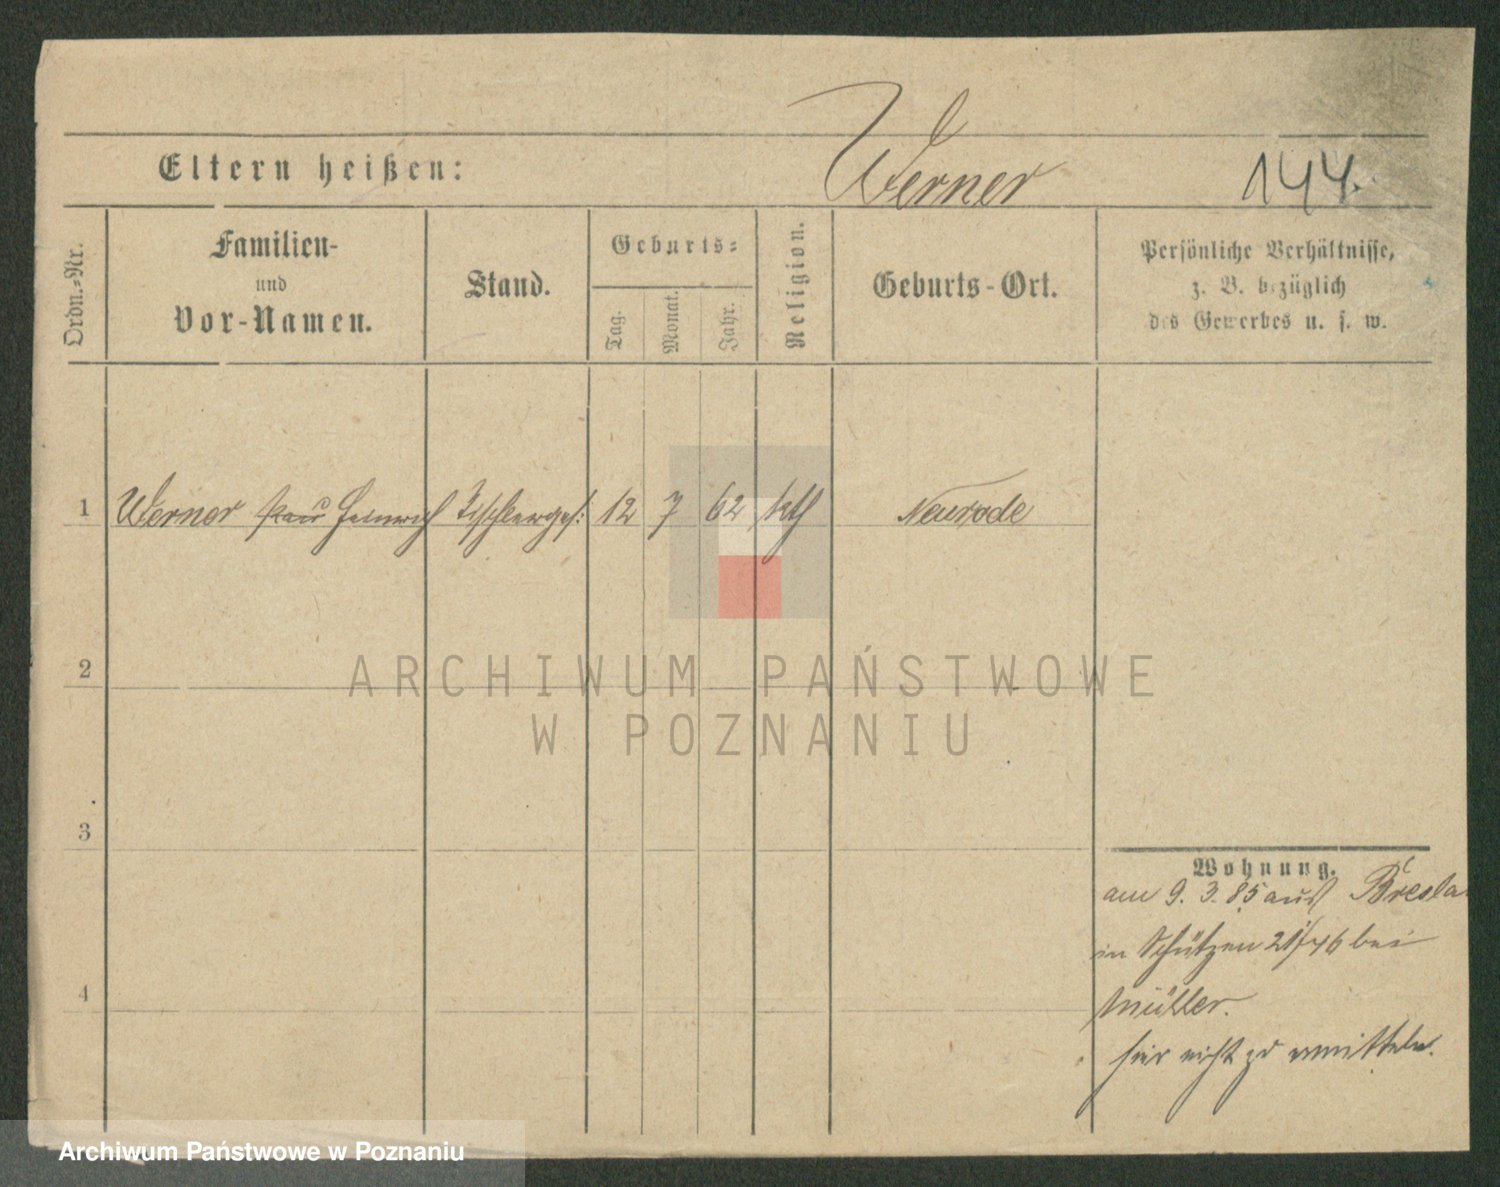 Werner
Eltern heißen: 144.
Ordn.-Nr.
Familien-
und
Vor-Namen.
Stand.
Geburts-
Tag.
Monat.
Jahr.
Religion.
Geburts-Ort.
Persönliche Verhältnisse,
z. B. bezüglich
des Gewerbes u. s. w.
1 Werner Heinrich Tischlerges. 12 7 62 kth Neurode
2
ARCHIWUM PAŃSTWOWE
W POZNANIU
3
4
Wohnung.
am 9. 3. 85 aus Bresla
in Schützen 21/ bei
Müller.
hier nicht zu ermitteln.
Archiwum Państwowe w Poznaniu